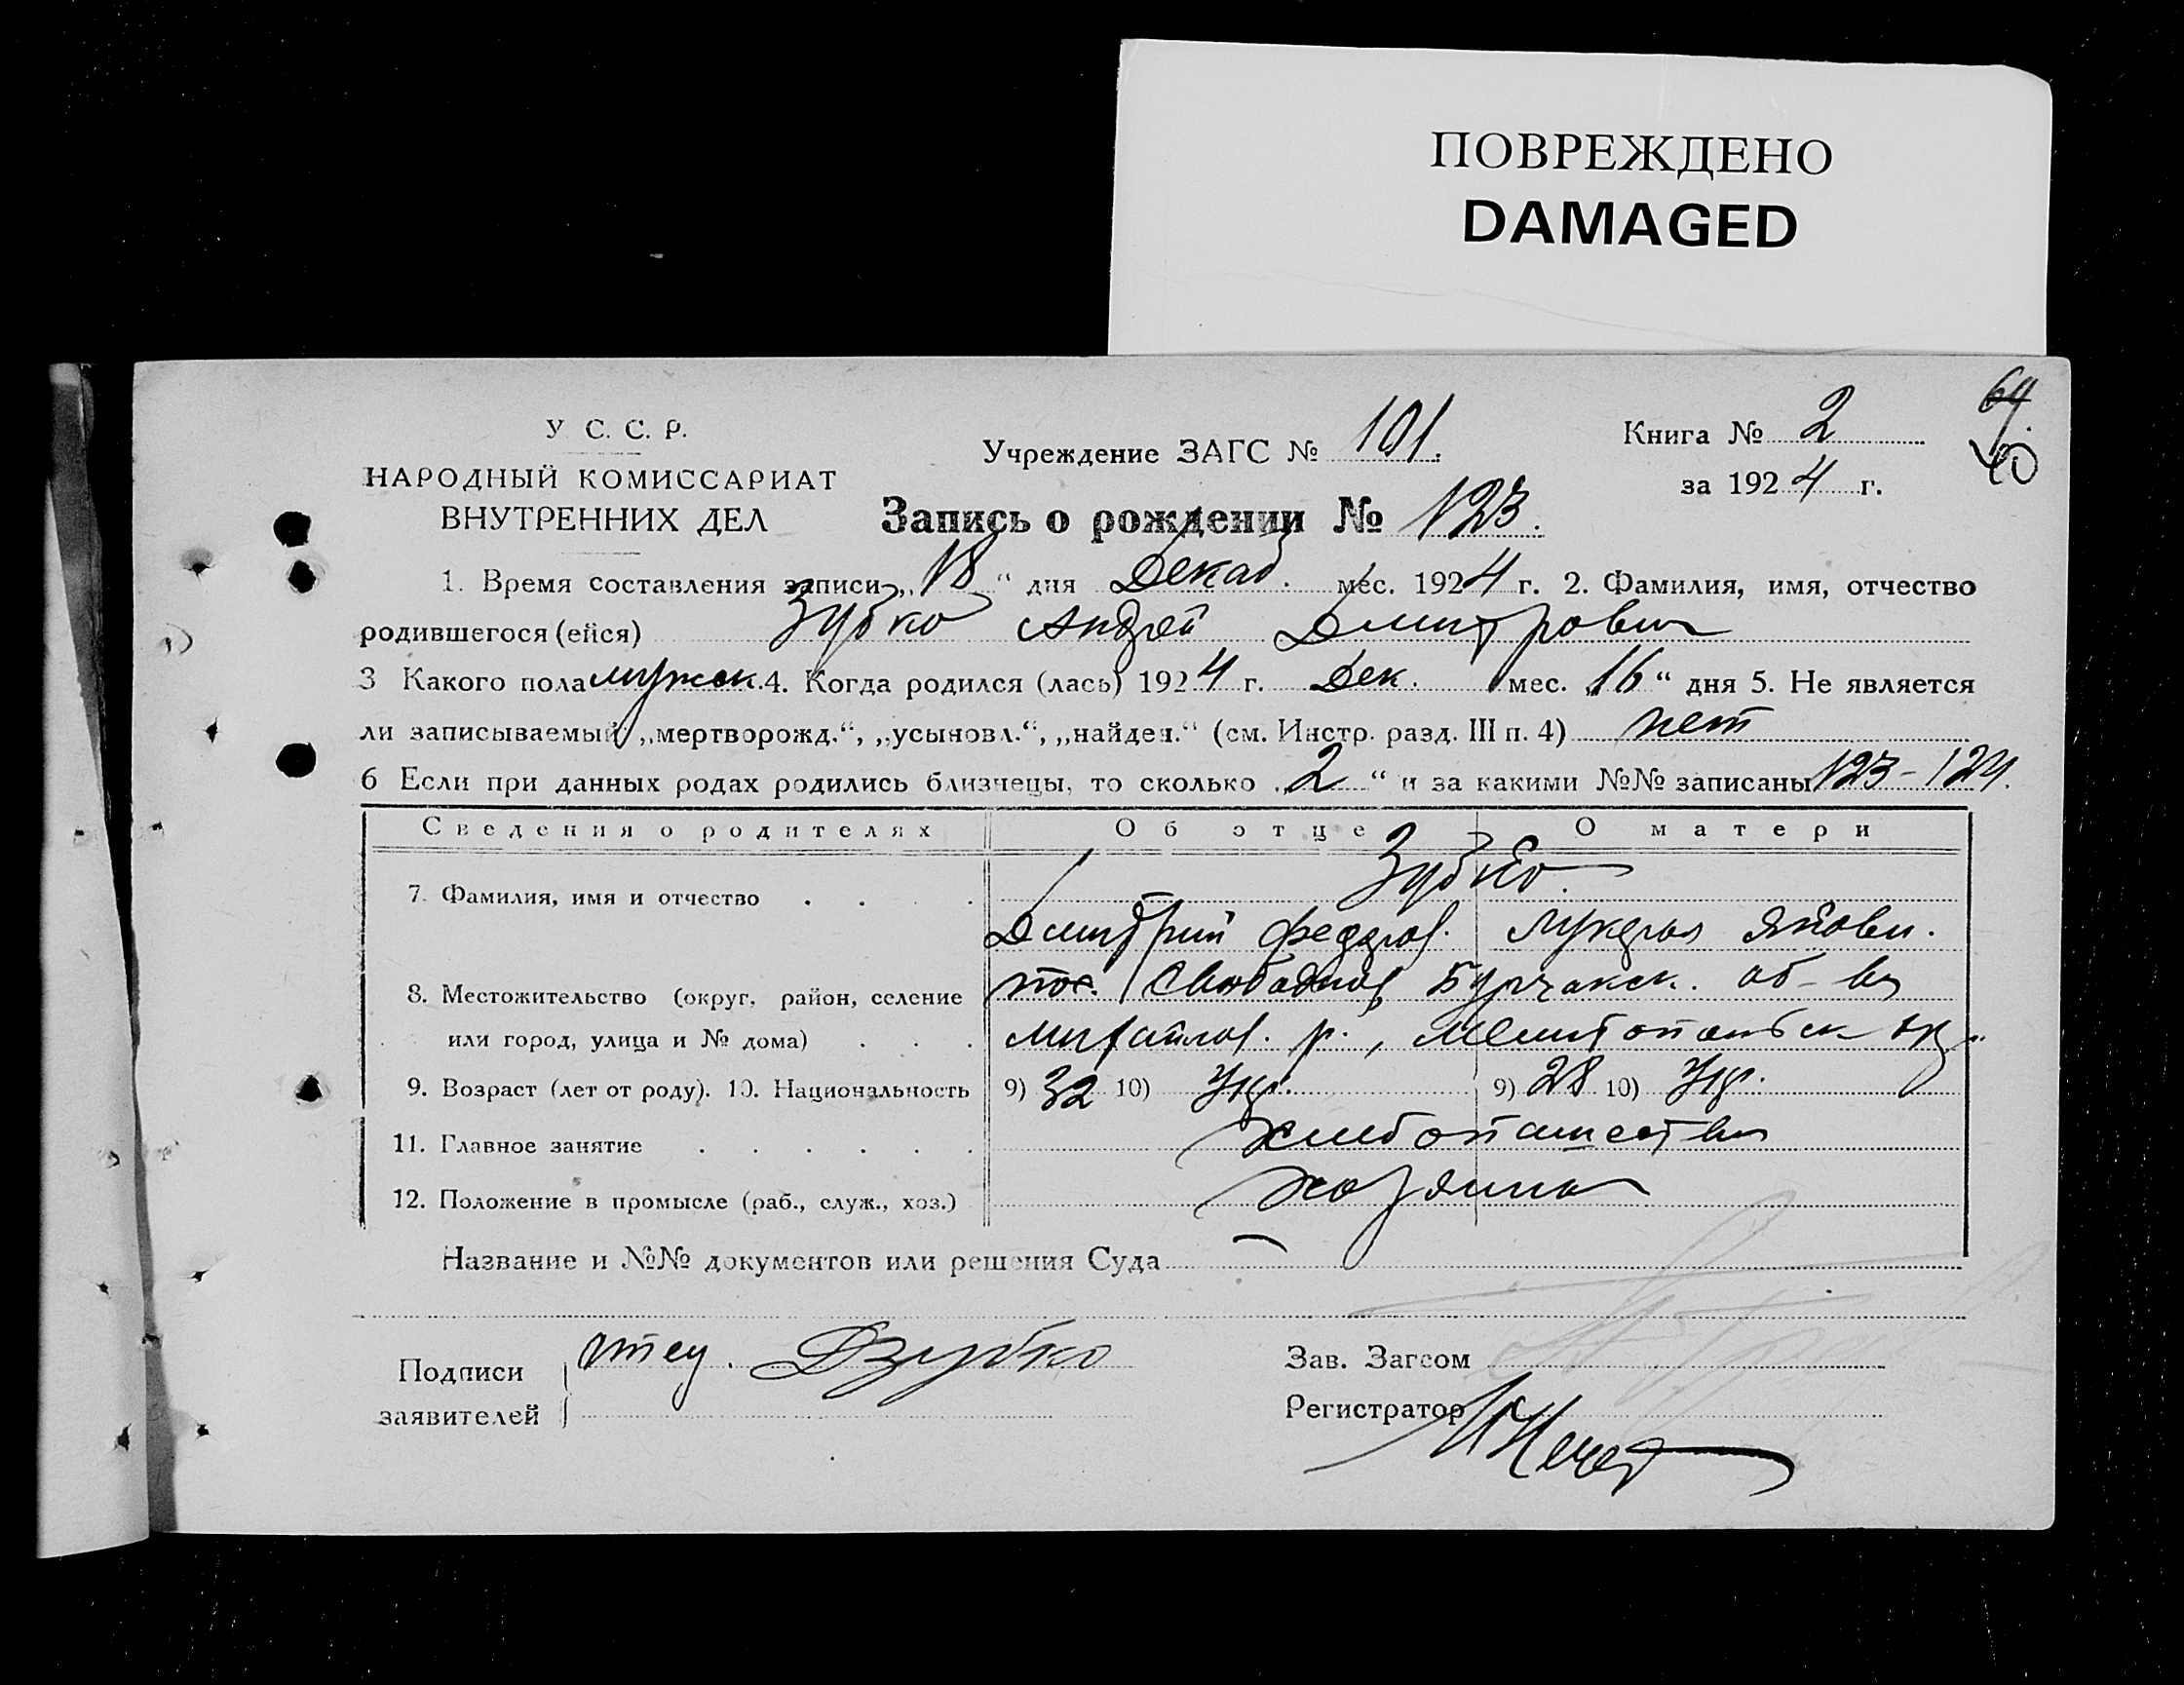 ПОВРЕЖДЕНО
DAMAGED
64
40
У С. С. Р.
НАРОДНЫЙ КОМИССАРИАТ
ВНУТРЕННИХ ДЕЛ
Учреждение ЗАГС № 101.
Книга № 2
за 1924 г.
Запись о рождении № 123.
1. Время составления записи „18“ дня Декаб. мес. 1924 г. 2. Фамилия, имя, отчество
родившегося (ейся) Зубко Андрей Дмитрович
3 Какого пола мужск. 4. Когда родился (лась) 1924 г. Дек. мес. „16“ дня 5. Не является
ли записываемый „мертворожд.“, „усыновл.“, „найден.“ (см. Инстр. разд. III п. 4) нет
6 Если при данных родах родились близнецы, то сколько „2“ и за какими №№ записаны 123-124.
Сведения о родителях Об отце О матери
7. Фамилия, имя и отчество Зубко
Дмитрий Федоров. Лукерья Якови.
8. Местожительство (округ, район, селение пос. Свободный Бурчакск. об-ва
или город, улица и № дома) Михайлов. р., Мелитопольск окр.
9. Возраст (лет от роду). 10. Национальность 9) 32 10) Укр. 9) 28 10) Укр.
11. Главное занятие хлебопашество
12. Положение в промысле (раб., служ., хоз.) хозяина
Название и №№ документов или решения Суда —
Подписи заявителей отец. ДЗубко
Зав. Загсом
Регистратор